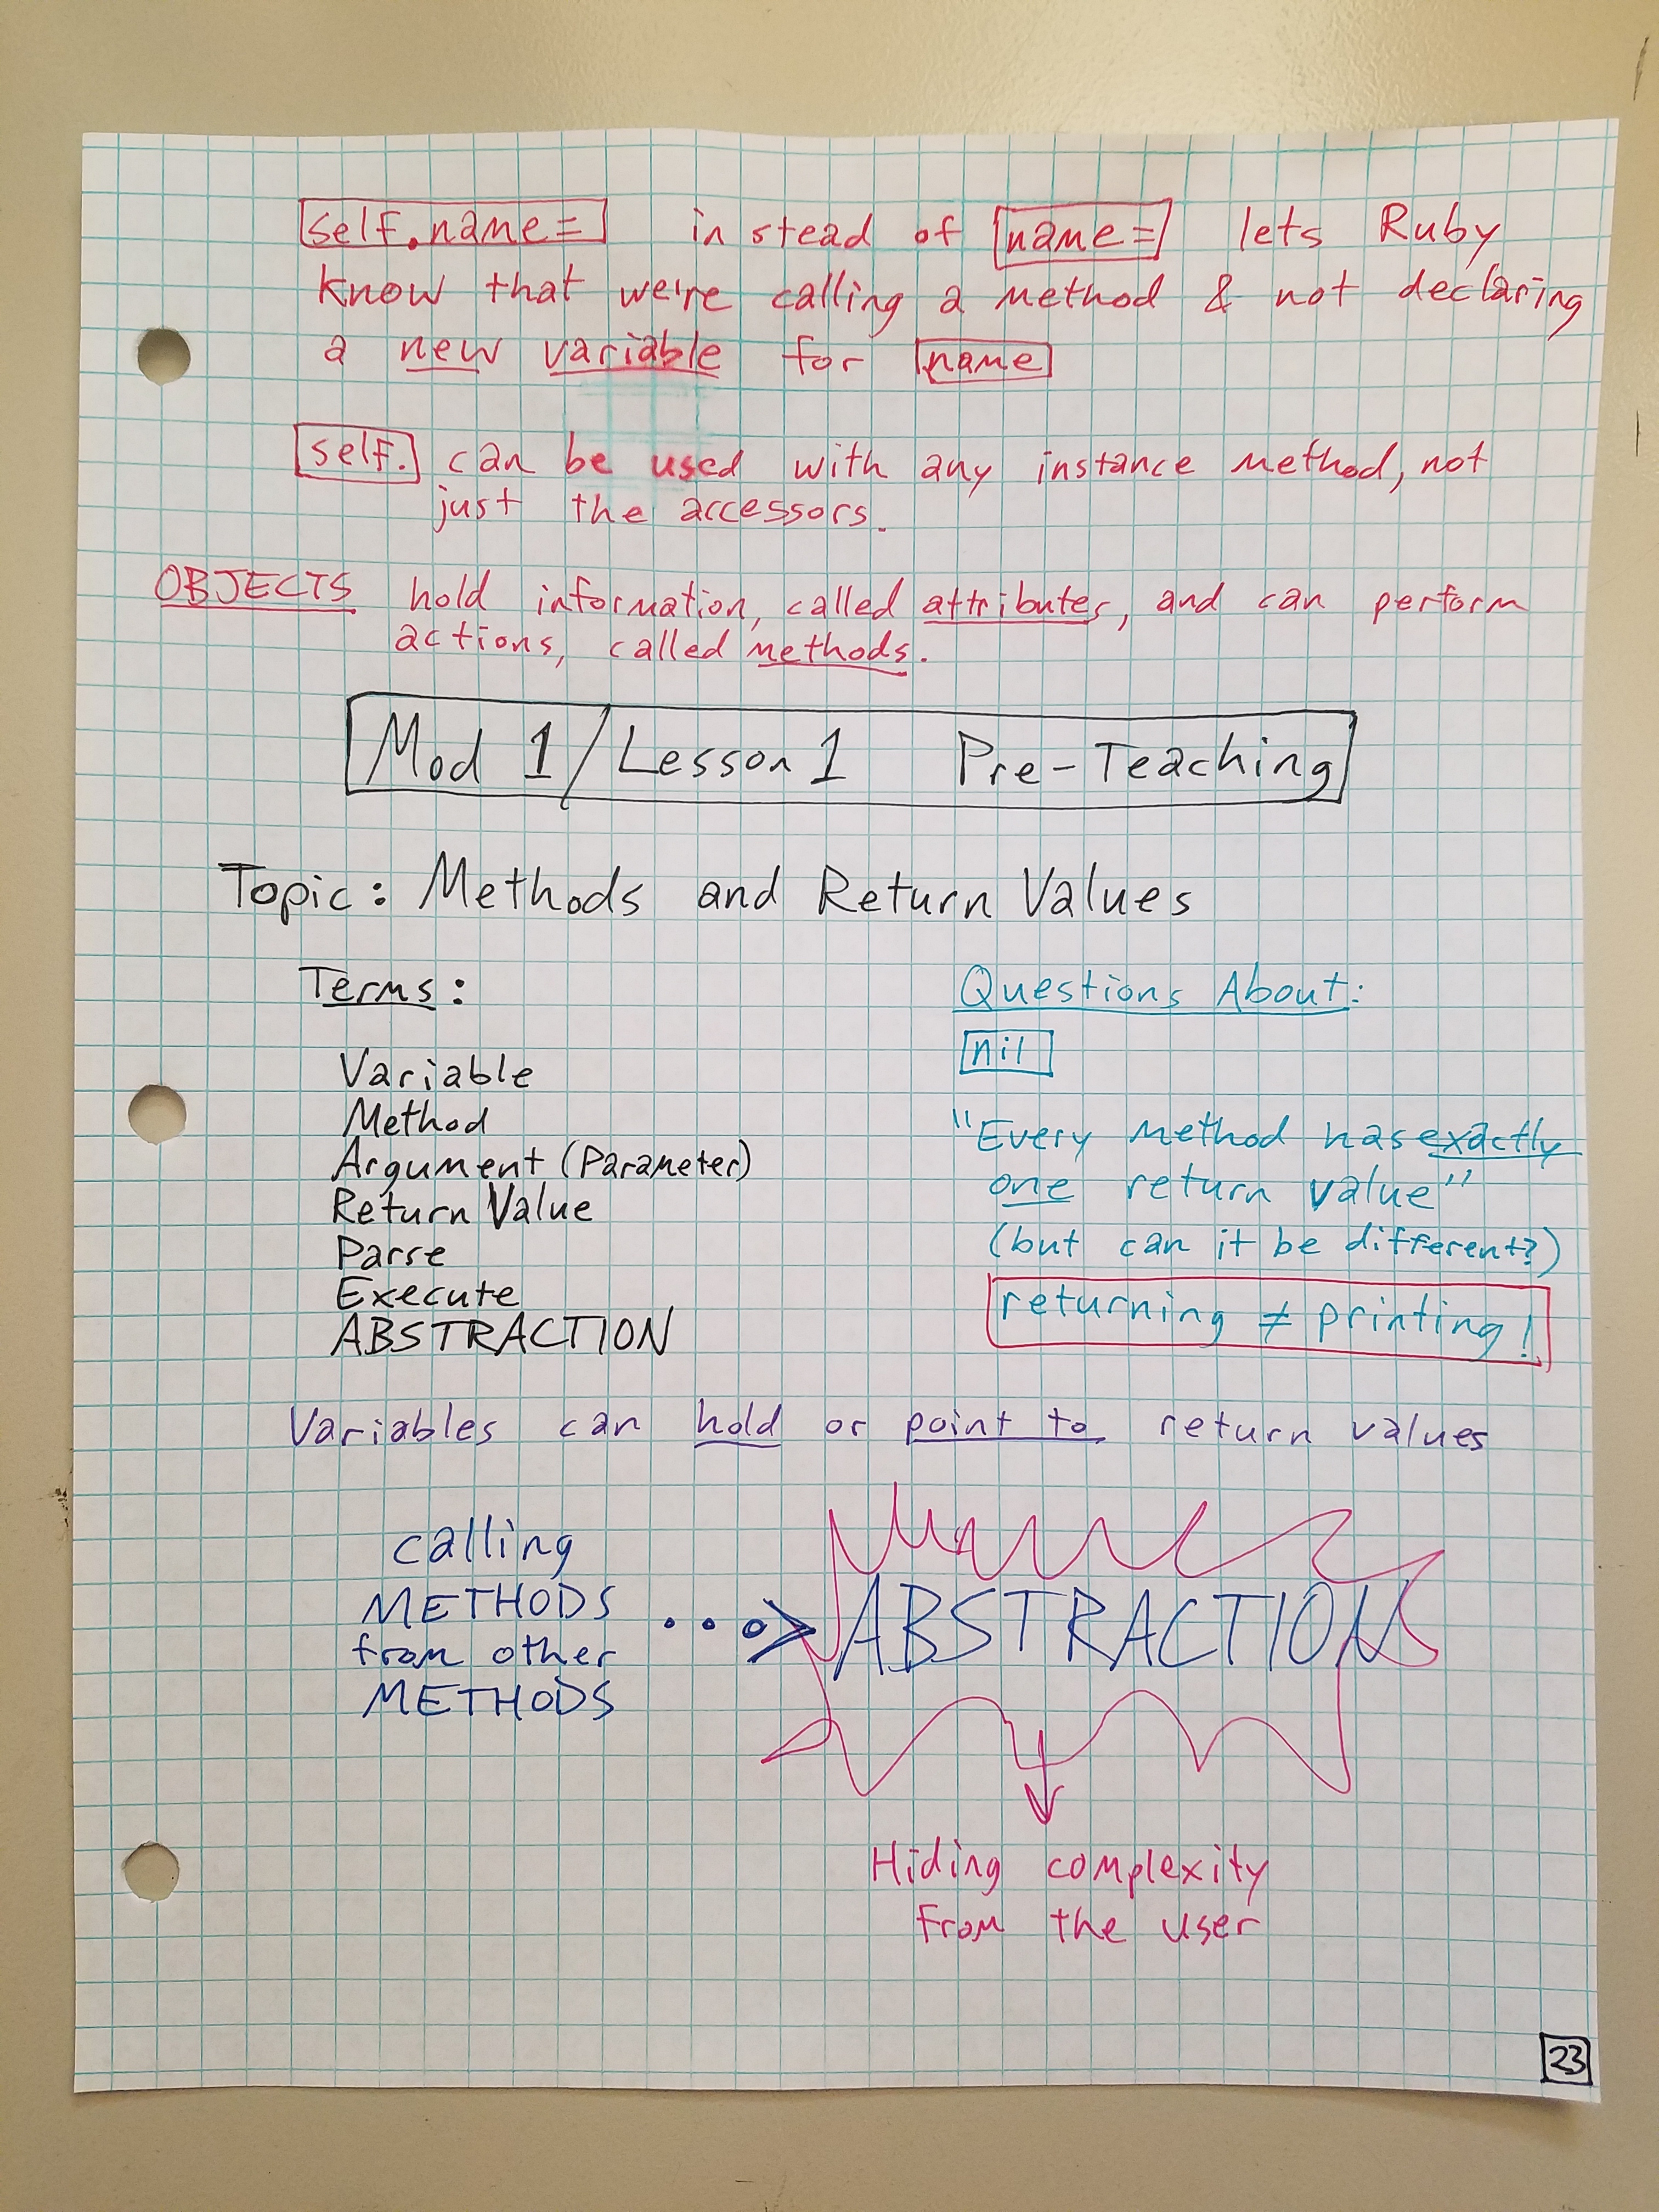 self.name= instead of name= lets Ruby
know that we're calling a method & not declaring
a new variable for name
self. can be used with any instance method, not
just the accessors.
OBJECTS hold information, called attributes, and can perform
actions, called methods.
Mod 1/Lesson 1 Pre-Teaching
Topic: Methods and Return Values
Terms:
Variable
Method
Argument (Parameter)
Return Value
Parse
Execute
ABSTRACTION
Questions About:
nil
"Every method has exactly
one return value"
(but can it be different?)
returning ≠ printing!
Variables can hold or point to return values
calling
METHODS
from other
METHODS
ABSTRACTION
Hiding complexity
from the user
23